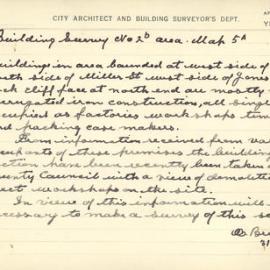 CITY ARCHITECT AND BUILDING SURVEYOR'S DEPT.
Building Survey No 2b area. Map 5A
Buildings in area bounded at west side of
side of Miller St west side of Jones
ck cliff face at north end are mostly
rrugated iron construction, all singl
cupied as factories workshops tim
nd packing case makers.
From information received from va
cupants of these premises the building
ction have been recently been taken
ounty Council with a view of demolit
ect workshops on the site.
In view of this information will
cessary to make a survey of this se